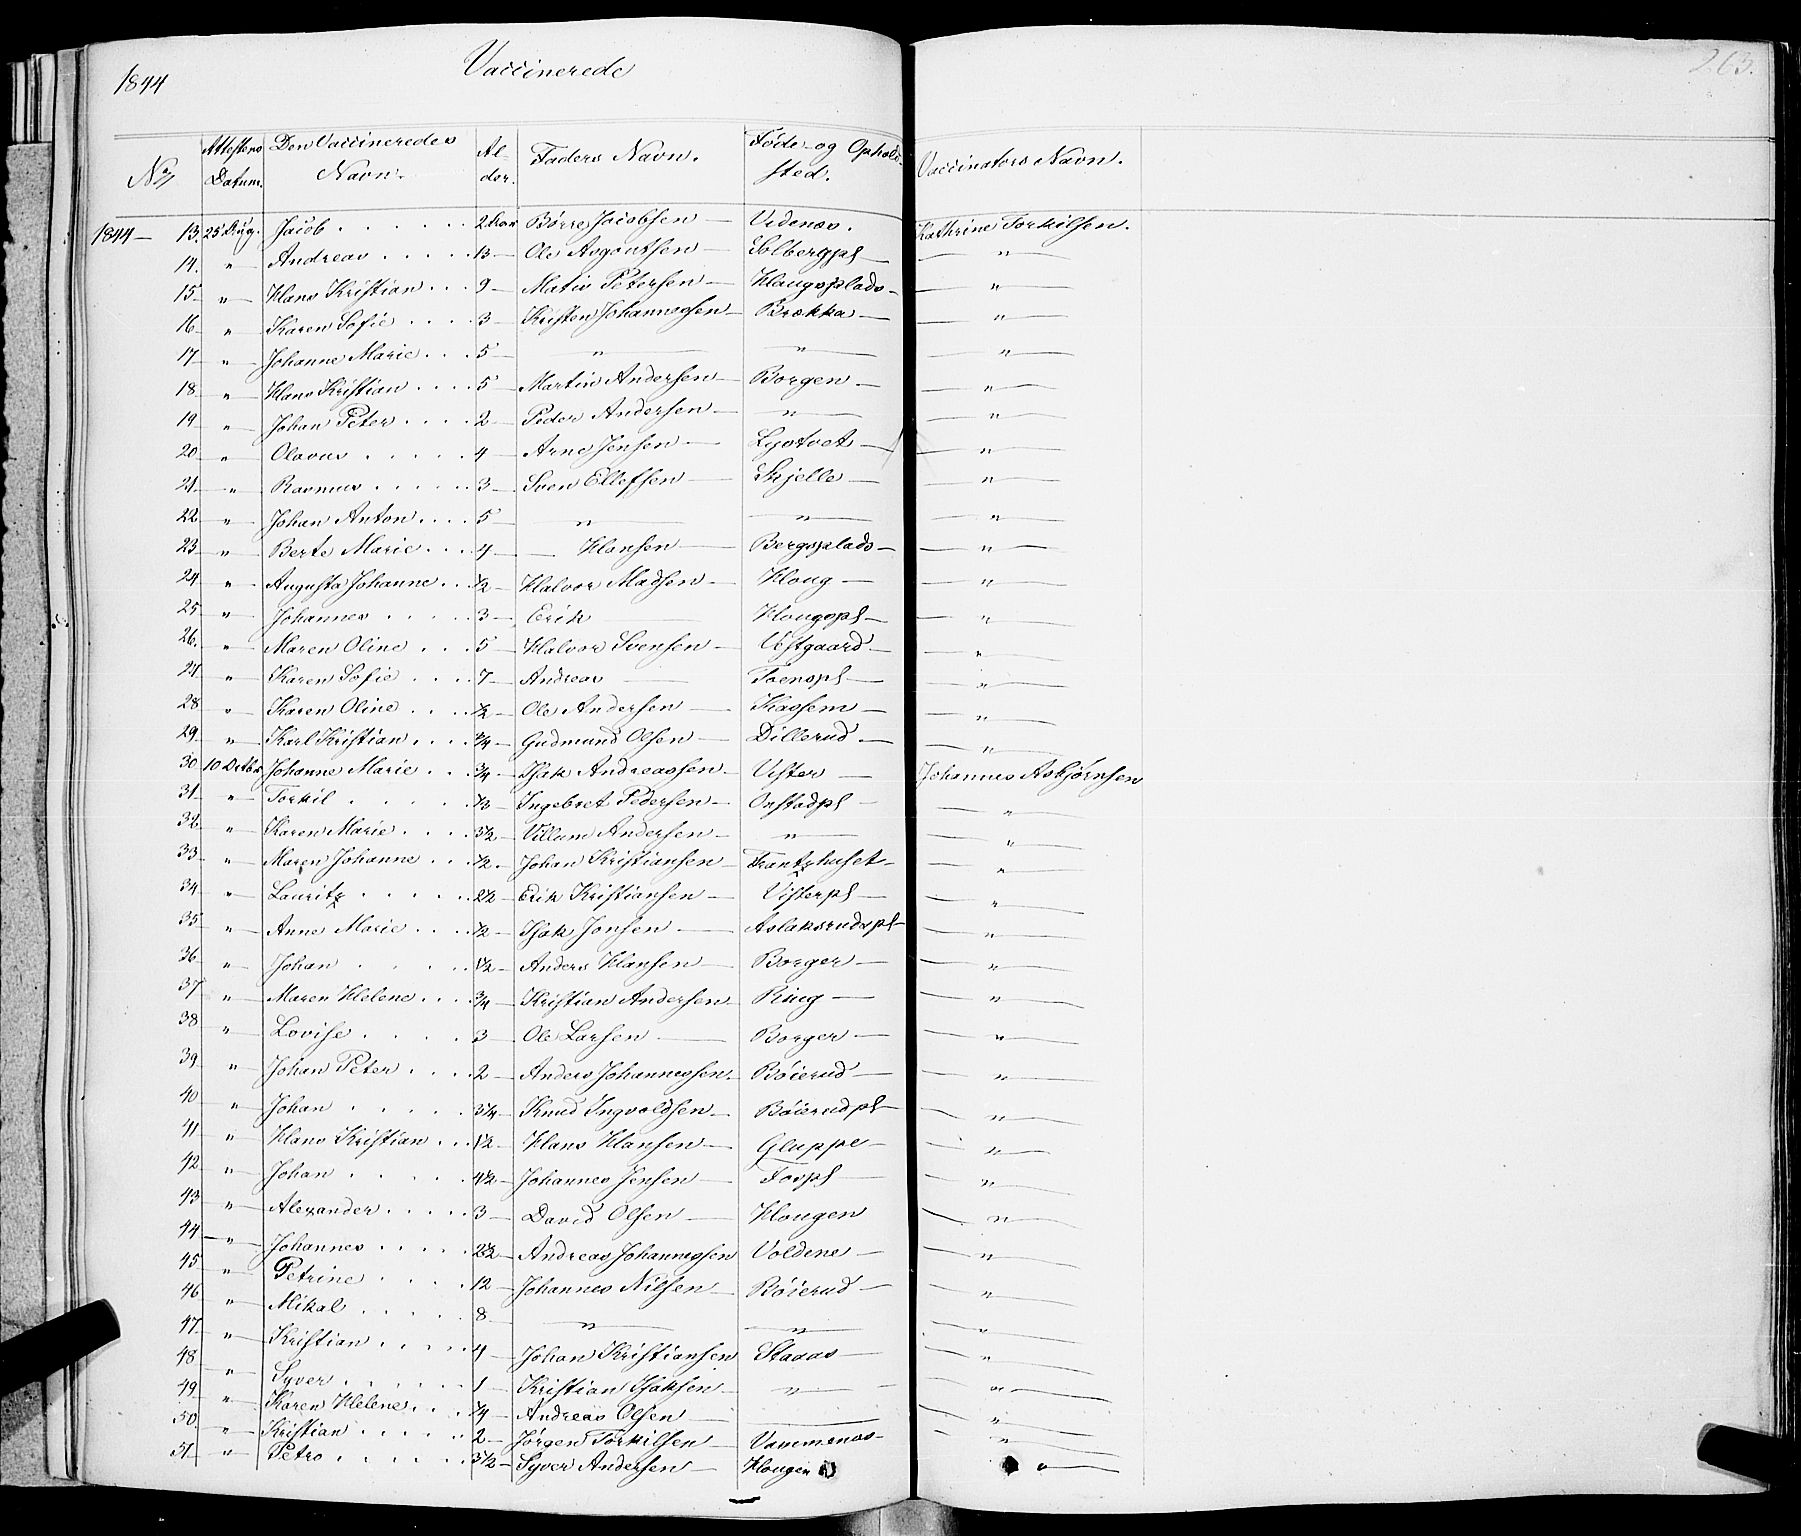 1844 Vaccinerede 265.
No Attestens Datum. Den Vaccineredes Navn. Alder. Faders Navn. Føde- og Opholdssted. Vaccinators Navn.
1844 — 13. 25 Aug. Jacob . . . . . . 2 Aar Børre Jacobsen — Vidnæs. Kathrine Torkilsen.
14. " — Andreas . . . . . 13 — Ole Asgoutsen Solbergpl — — " —
15 — " — Hans Kristian . . . 9 — Matis Petersen — Hougsplads — — " —
16 — " — Karen Sofie . . . . 3 — Kristen Johannessen — Brækka — — " —
17 — " — Johanne Marie . . . 5 — — " — — " — — " —
18 — " — Hans Kristian . . . . 5 — Martin Andersen — Borgen — — " —
19 — " — Johan Peter . . . . 2 — Peder Andersen — — " — — " —
20 — " — Olavus . . . . . 4 — Arne Jensen — Lystvet — — " —
21 — " — Rasmus . . . . . . 3 — Sven Ellefsen — Skjelle — — " —
22 — " — Johan Anton . . . . 5 — — " — — " — — " —
23 — " — Berte Marie . . . 4 — — Hansen — Bergsplads — — " —
24 — " — Augusta Johanne . . 1/2 — Halvor Madsen — Houg — — " —
25 — " — Johannes . . . . . 3 — Erik — Hougspl — — " —
26. — " — Maren Oline . . . 5 — Halvor Svensen — Vestgaard — — " —
27 — " — Karen Sofie . . . . 7 — Andreas — Toenspl — — " —
28 — " — Karen Oline . . . . 1/2 — Ole Andersen — Kassem — — " —
29. — " — Karl Kristian . . . . 3/4 — Gudmund Olsen — Dillerud — — " —
30 10 Octbr Johanne Marie . . 3/4 — Isak Andreassen — Vister — Johannes Asbjørnsen
31 — " — Torkil . . . . . . 1/3 — Ingebret Pedersen — Onstadpl — — " —
32 — " — Karen Marie . . . . 3 1/2 — Villum Andersen — — " — — " —
33 — " — Maren Johanne . . 1/2 — Johan Kristiansen — Frantzhuset — — " —
34 — " — Lauritz . . . . . . 2 1/2 — Erik Kristiansen — Visterpl — — " —
35 — " — Anne Marie . . . . 1/2 — Isak Jonsen — Aslaksrudspl — — " —
36 — " — Johan . . . . . 1 1/2 — Anders Hansen — Borger — — " —
37 — " — Maren Helene . . . 3/4 — Kristian Andersen — Ring — — " —
38 — " — Lovise . . . . . 3 — Ole Larsen — Borger — — " —
39 — " — Johan Peter . . . . 2 — Anders Johannessen — Böierud — — " —
40 — " — Johan . . . . . . 3 1/4 — Knud Ingvoldsen — Böierudpl — — " —
41 — " — Hans Kristian . . . 1 1/2 — Hans Hansen — Gluppe — — " —
42 — " — Johan . . . . . . 4 1/2 — Johannes Jensen — Fospl — — " —
43 — " — Alexander . . . . . 3 — David Olsen — Hougen — " —
44 — " — Johannes . . . . . 2 1/2 — Andreas Johannessen Voldene — — " —
45 — " — Petrine . . . . . 12 — Johannes Nilsen — Böierud — — " —
46 — " — Mikal . . . . . 8 — — " — — " — — " —
47 — " — Kristian . . . . . 4 — Johan Kristiansen — — " —
48 — " — Syver . . . . . . 1 — Kristian Isaksen — — " — — " —
49 — " — Karen Helene . . . 1/4 — Andreas Olsen — — — " —
50 — " — Kristian . . . . . . 2 — Jørgen Torkilsen — Vammenæs — — " —
51 — " — Petro . . . . . . 3 1/2 — Syver Andersen — Hougen — " —